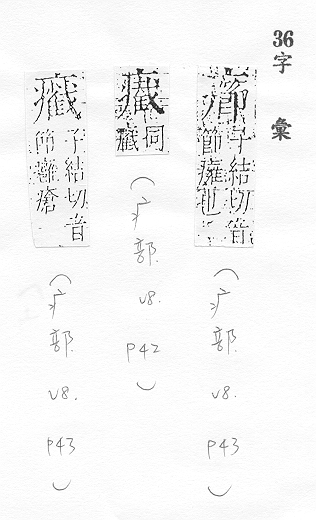 36
字彙
子結切音
節癰也
（疒部. v8. P43）
同
（疒部. v8. P42）
子結切音
節癰瘡
（疒部. v8. P43）